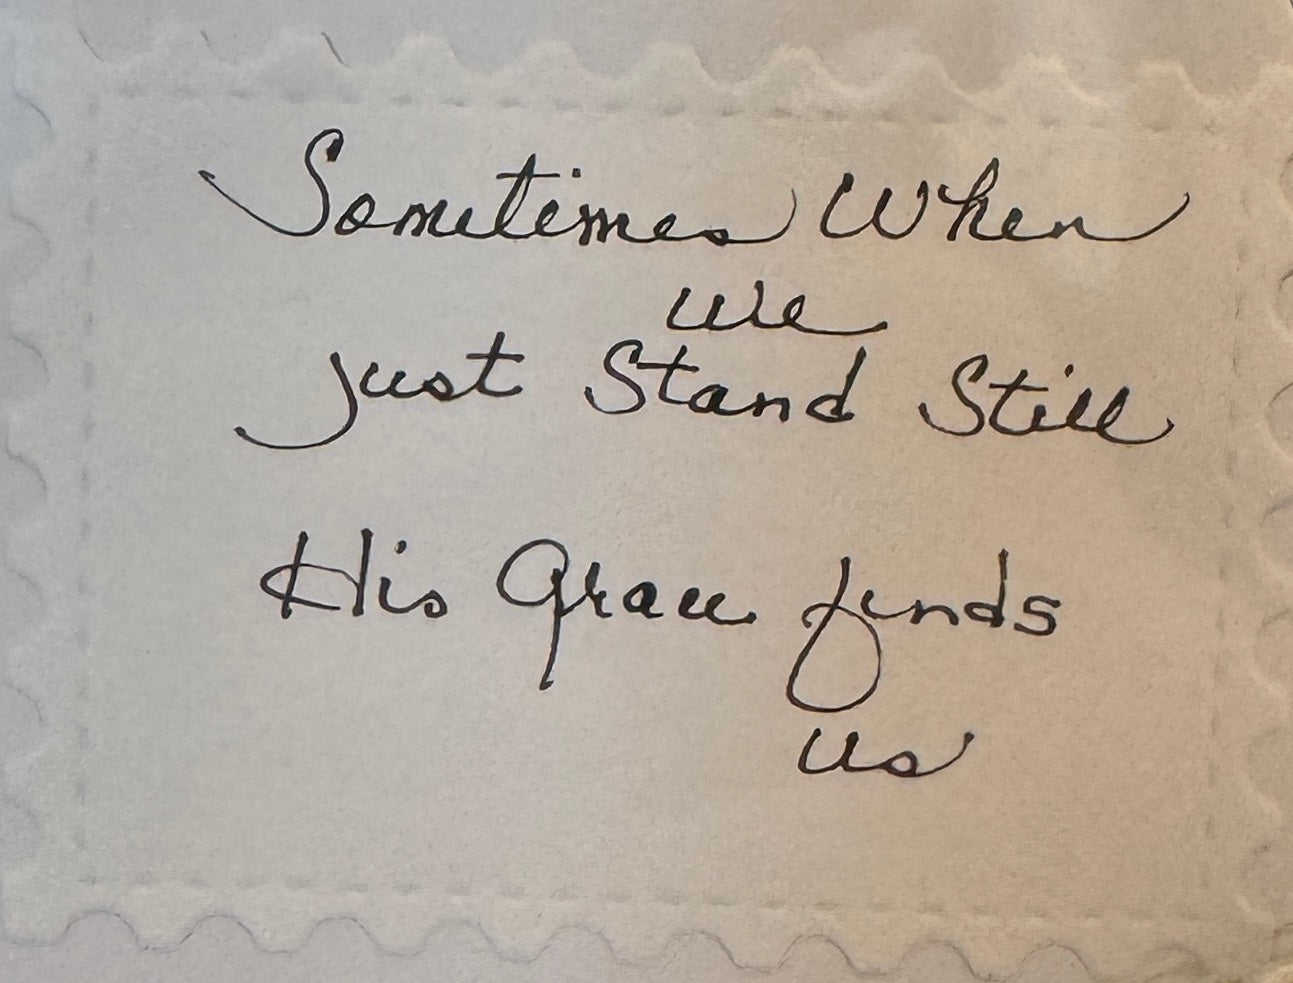 Sometimes When
we
just Stand Still
His Grace finds
us